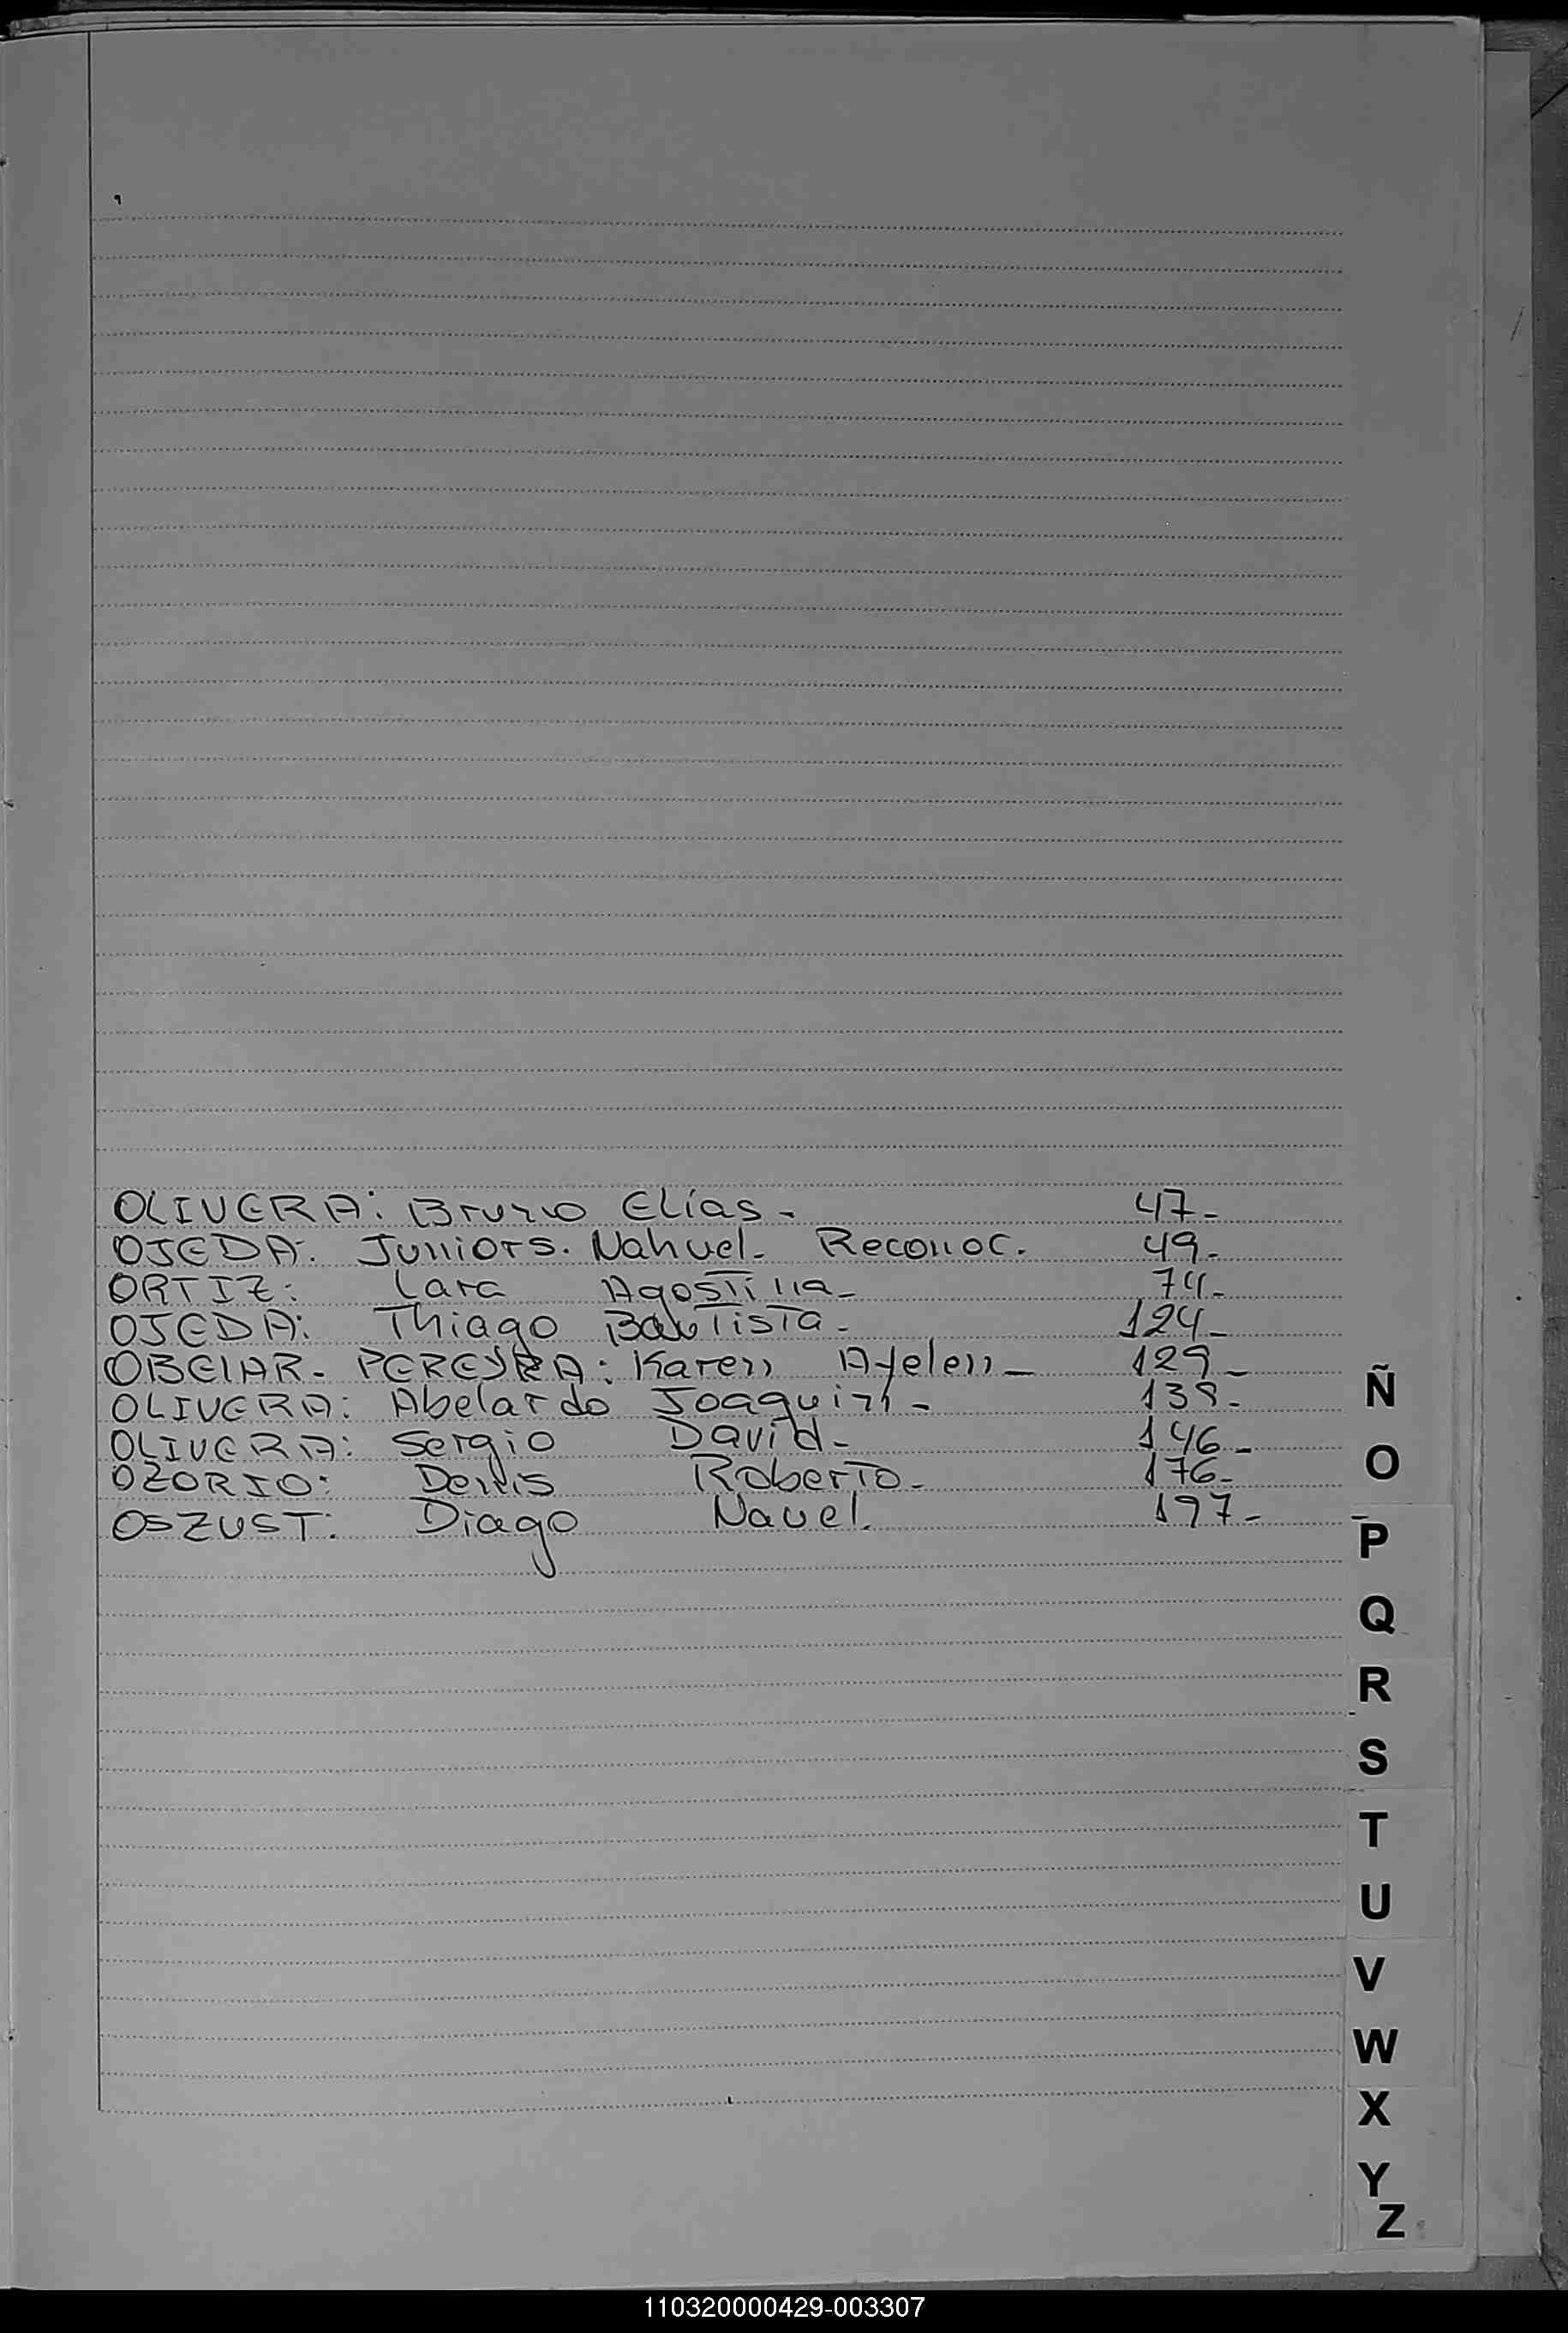 OLIVERA: Bruno Elías- 47-
OJEDA: Juniors. Nahuel- Reconoc. 49-
ORTIZ: Lara Agostina- 74-
OJEDA: Thiago Bautista- 124-
OBELAR- PEREYRA: Karen Ayelen- 129-
OLIVERA: Abelardo Joaquin- 139-
OLIVERA: Sergio David- 146-
OZORIO: Denis Roberto- 176-
OSZUST: Diago Nauel. 197-
Ñ
O
P
Q
R
S
T
U
V
W
X
Y
Z
110320000429-003307